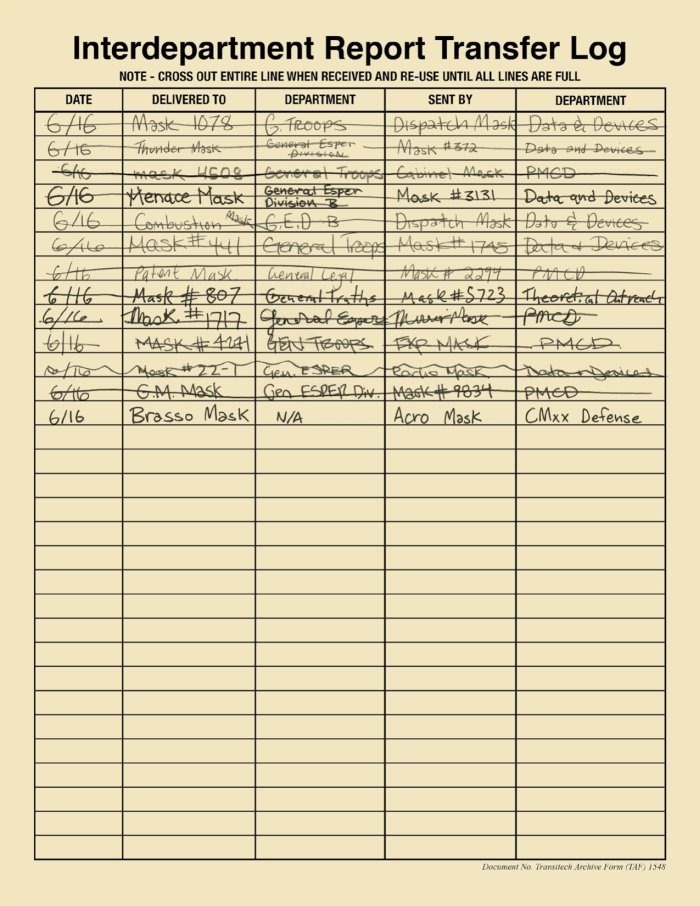 Interdepartment Report Transfer Log
NOTE - CROSS OUT ENTIRE LINE WHEN RECEIVED AND RE-USE UNTIL ALL LINES ARE FULL
DATE DELIVERED TO DEPARTMENT SENT BY DEPARTMENT
6/16 Mask 1078 G. TROOPS Dispatch Mask Data & Devices
6/16 Thunder Mask General Esper Division Mask #372 Data and Devices
6/16 mask 4508 General Troops Cabinet Mask PMCD
6/16 Menace Mask General Esper Division B Mask #3131 Data and Devices
6/16 Combustion Mask G.E.D B Dispatch Mask Data & Devices
6/16 Mask #441 General Troops Mask #1745 Data & Devices
6/16 Patent Mask General Legal Mask # 2294 PMCD
6/16 Mask # 807 General Truths Mask #5723 Theoretical Outreach
6/16 Mask #1717 General Esper Mask PMCD
6/16 MASK # 4241 GEN TROOPS EXP MASK PMCD
6/16 Mask #22-1 Gen. ESPER Radio Mask Data & Devices
6/16 G.M. Mask Gen ESPER Div. Mask# 9834 PMCD
6/16 Brasso Mask N/A Acro Mask CMxx Defense
Document No. Transitech Archive Form (TAF) 1548